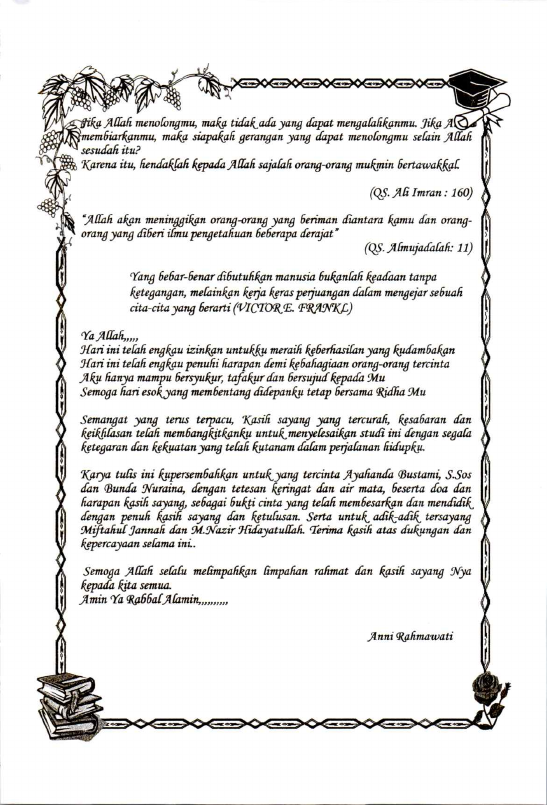 Jika Allah menolongmu, maka tidak ada yang dapat mengalahkanmu. Jika
membiarkanmu, maka siapakah gerangan yang dapat menolongmu selain Allah
sesudah itu?
Karena itu, hendaklah kepada Allah sajalah orang-orang mukmin bertawakkal.
(QS. Ali Imran : 160)
"Allah akan meninggikan orang-orang yang beriman diantara kamu dan orang-
orang yang diberi ilmu pengetahuan beberapa derajat"
(QS. Almujadalah: 11)
Yang bebar-benar dibutuhkan manusia bukanlah keadaan tanpa
ketegangan, melainkan kerja keras perjuangan dalam mengejar sebuah
cita-cita yang berarti (VICTOR E. FRANKL)
Ya Allah,,,,,
Hari ini telah engkau izinkan untukku meraih keberhasilan yang kudambakan
Hari ini telah engkau penuhi harapan demi kebahagiaan orang-orang tercinta
Aku hanya mampu bersyukur, tafakur dan bersujud kepada Mu
Semoga hari esok yang membentang didepanku tetap bersama Ridha Mu
Semangat yang terus terpacu, Kasih sayang yang tercurah, kesabaran dan
keikhlasan telah membangkitkanku untuk menyelesaikan studi ini dengan segala
ketegaran dan kekuatan yang telah kutanam dalam perjalanan hidupku.
Karya tulis ini kupersembahkan untuk yang tercinta Ayahanda Bustami, S.Sos
dan Bunda Nuraina, dengan tetesan keringat dan air mata, beserta doa dan
harapan kasih sayang, sebagai bukti cinta yang telah membesarkan dan mendidik
dengan penuh kasih sayang dan ketulusan. Serta untuk adik-adik tersayang
Miftahul Jannah dan M.Nazir Hidayatullah. Terima kasih atas dukungan dan
kepercayaan selama ini..
Semoga Allah selalu melimpahkan limpahan rahmat dan kasih sayang Nya
kepada kita semua.
Amin Ya Rabbal Alamin,,,,,,,,,,
Anni Rahmawati